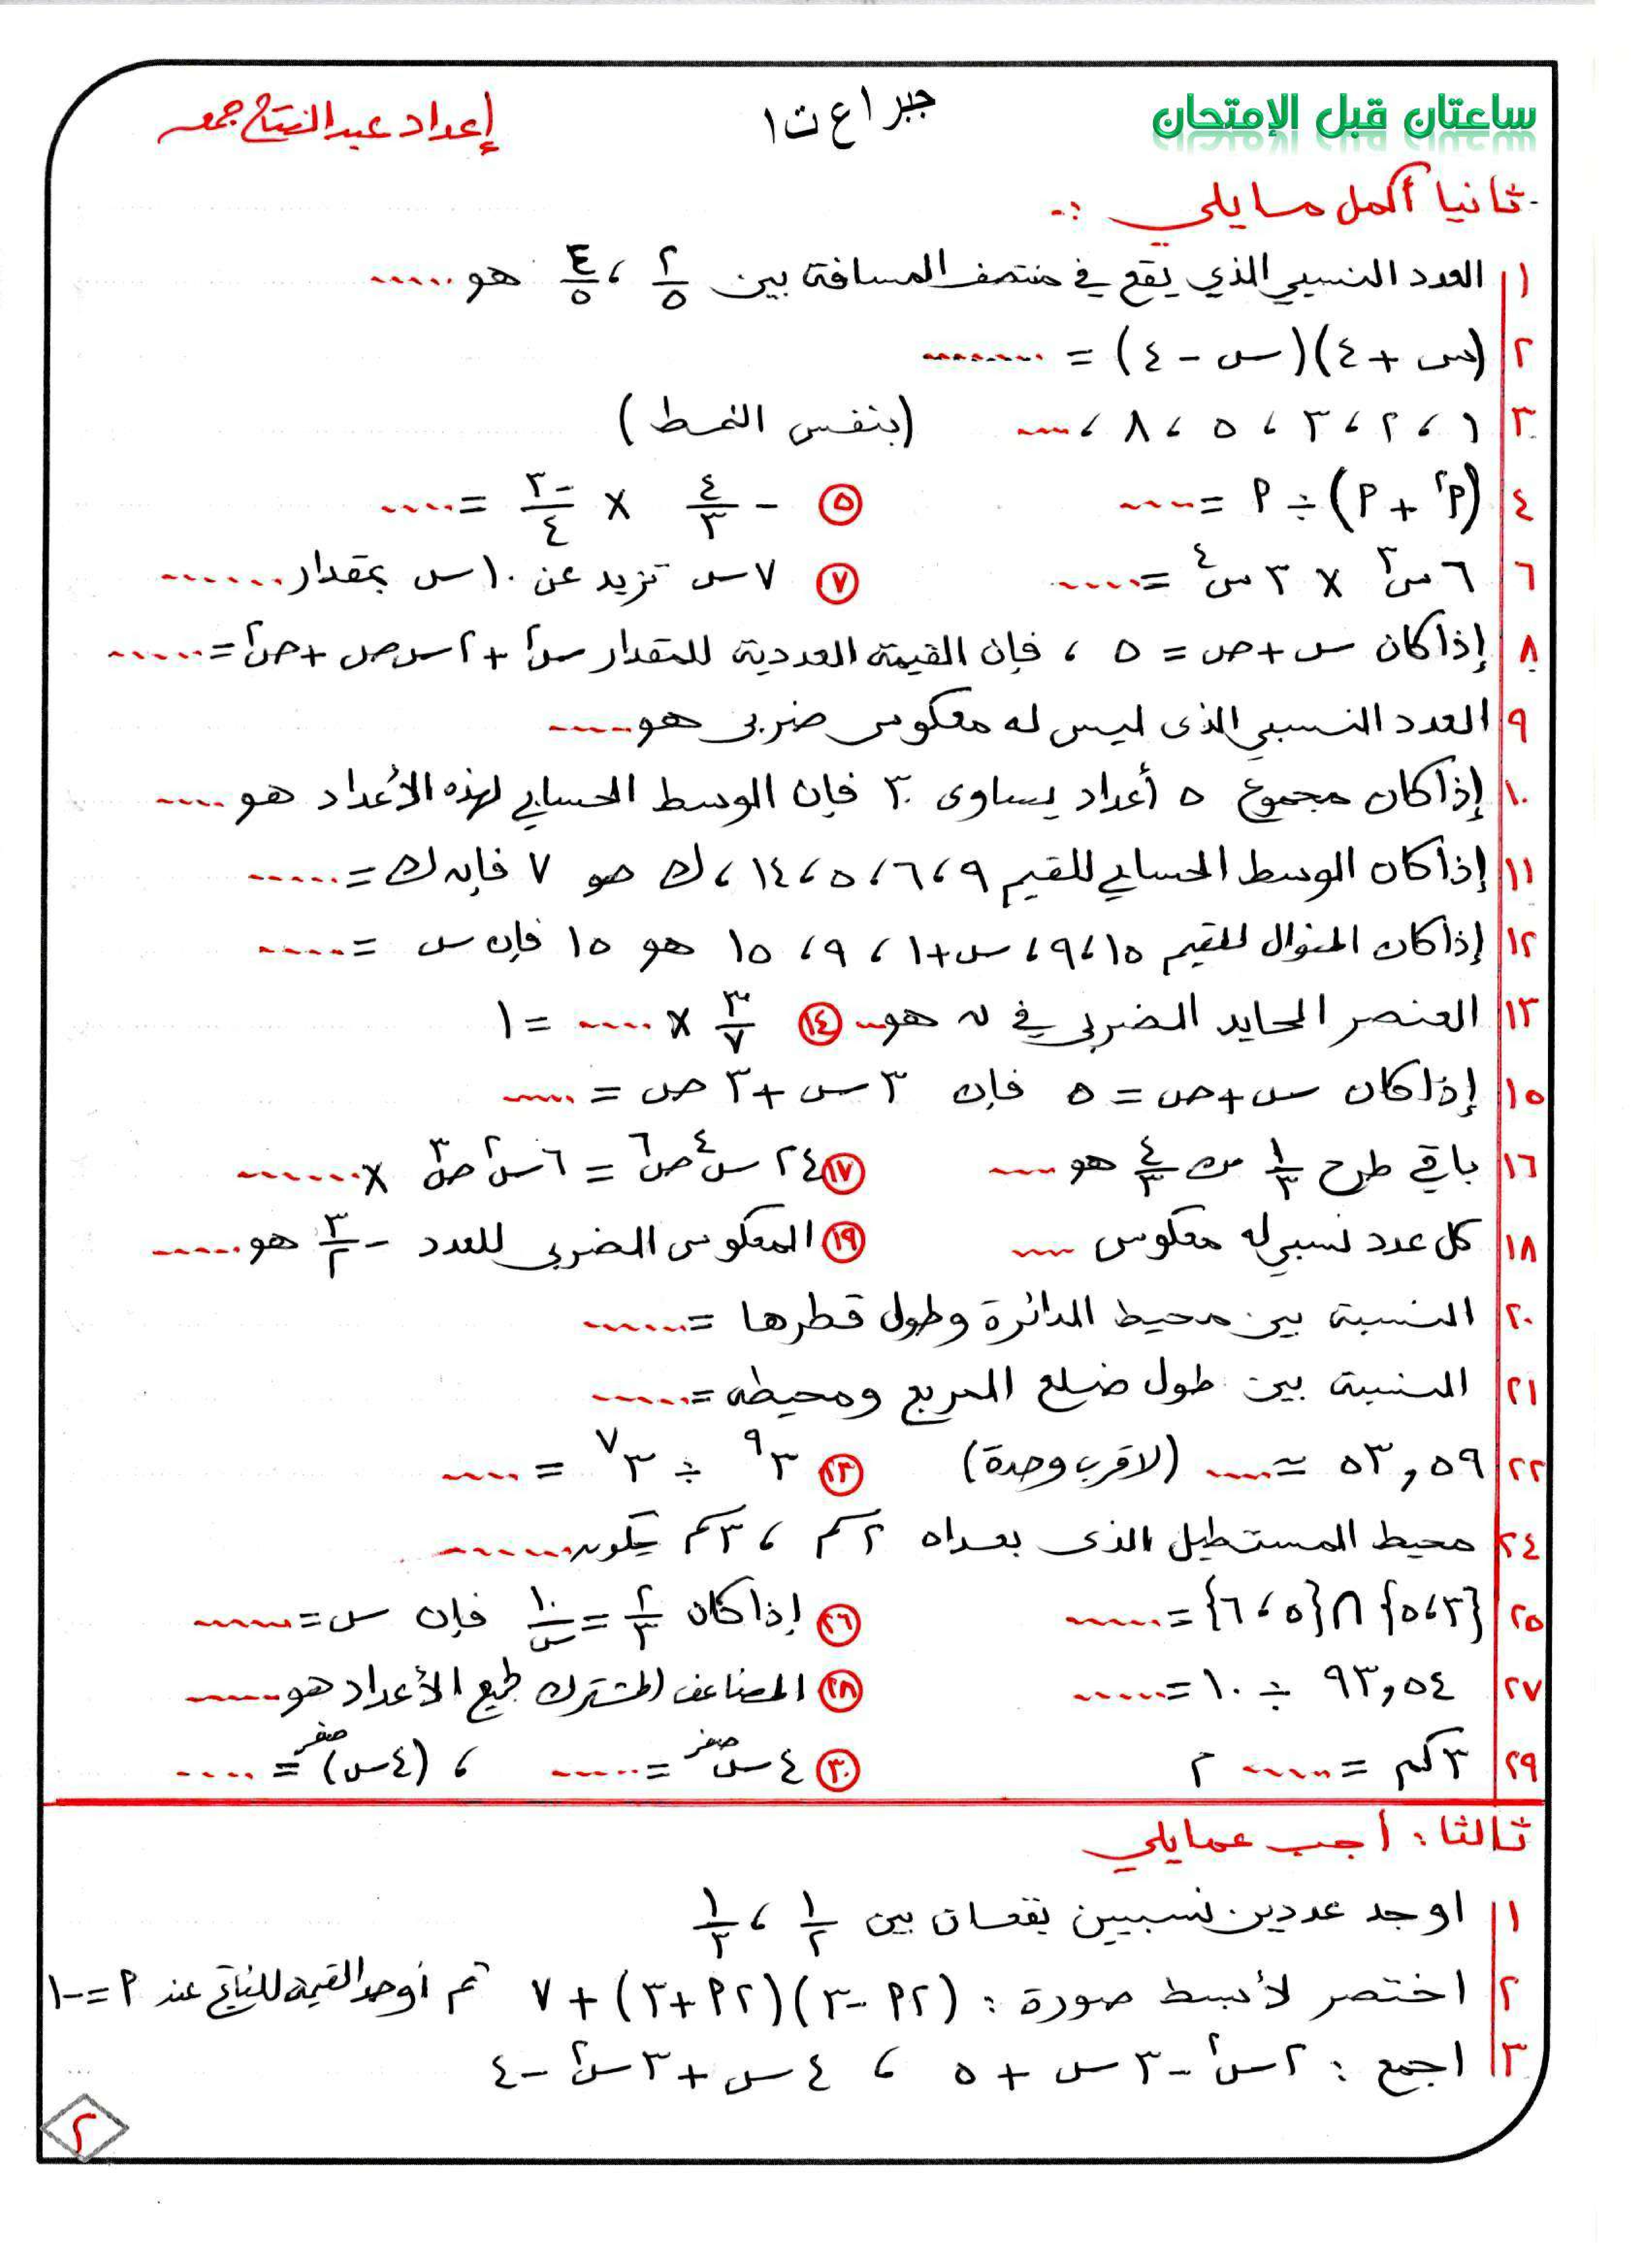 ساعتان قبل الإمتحان
جبر ١ع ت١
إعداد عبدالفتاح جمعه
ثانيا أكمل مايلي :-
١ العدد النسبي الذي يقع في منتصف المسافة بين ٢/٥ ، ٤/٥ هو .....
٢ (س + ٤)(س - ٤) = ........
٣ ١ ، ٢ ، ٣ ، ٥ ، ٨ ، .... (بنفس النمط)
٤ (٢م + م) ÷ م = .... ٥ - ٤/٣ × -٣/٤ = ....
٦ ٦س٣ × ٣س٤ = ..... ٧ ٧س تزيد عن ١٠س بمقدار ......
٨ إذا كان س + ص = ٥ ، فإن القيمة العددية للمقدار س٢ + ٢س ص + ص٢ = ......
٩ العدد النسبي الذى ليس له معكوس ضربى هو ....
١٠ إذا كان مجموع ٥ أعداد يساوى ٣٠ فإن الوسط الحسابي لهذه الأعداد هو ....
١١ إذا كان الوسط الحسابي للقيم ٩ ، ٦ ، ٥ ، ١٤ ، ك هو ٧ فإن ك = .....
١٢ إذا كان المنوال للقيم ١٥ ، ٩ ، س + ١ ، ٩ ، ١٥ هو ١٥ فإن س = .....
١٣ العنصر المحايد الضربى في ن هو .. ١٤ ٣/٧ × .... = ١
١٥ إذا كان س + ص = ٥ فإن ٣س + ٣ص = ....
١٦ باقي طرح ١/٣ من ٤/٣ هو .... ١٧ ٢٤س٤ص٦ = ٦س٢ص٣ × ......
١٨ كل عدد نسبي له معكوس .... ١٩ المعكوس الضربى للعدد - ٣/٢ هو ......
٢٠ النسبة بين محيط الدائرة وطول قطرها = ......
٢١ النسبة بين طول ضلع المربع ومحيطه = ......
٢٢ ٥٣,٥٩ ≃ .... (لاقرب وحدة) ٢٣ ٣٩ ÷ ٣٧ = ....
٢٤ محيط المستطيل الذى بعداه ٢سم ، ٣سم يكون ......
٢٥ {٣ ، ٥} ∩ {٥ ، ٦} = ...... ٢٦ إذا كان ٢/٣ = ١٠/س فإن س = ......
٢٧ ٩٣,٥٤ ÷ ١٠ = ..... ٢٨ المضاعف المشترك لجميع الأعداد هو ......
٢٩ ٣كم = ..... م ٣٠ ٤س صفر = ..... ، (٤س) صفر = ....
ثالثا : أجب عمايلي
١ اوجد عددين نسبيين يقعان بين ١/٢ ، ١/٣
٢ اختصر لأبسط صورة : (٢م - ٣)(٢م + ٣) + ٧ ثم أوجد القيمة للناتج عند م = -١
٣ اجمع : ٢س٢ - ٣س + ٥ ، ٤س + ٣س٢ - ٤
٢